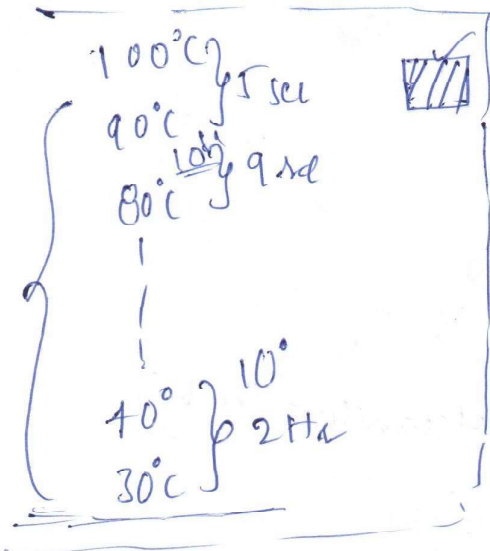 100°C
5 sec
90°C
10°
9 sec
80°C
40°
10°
2 Hr
30°C